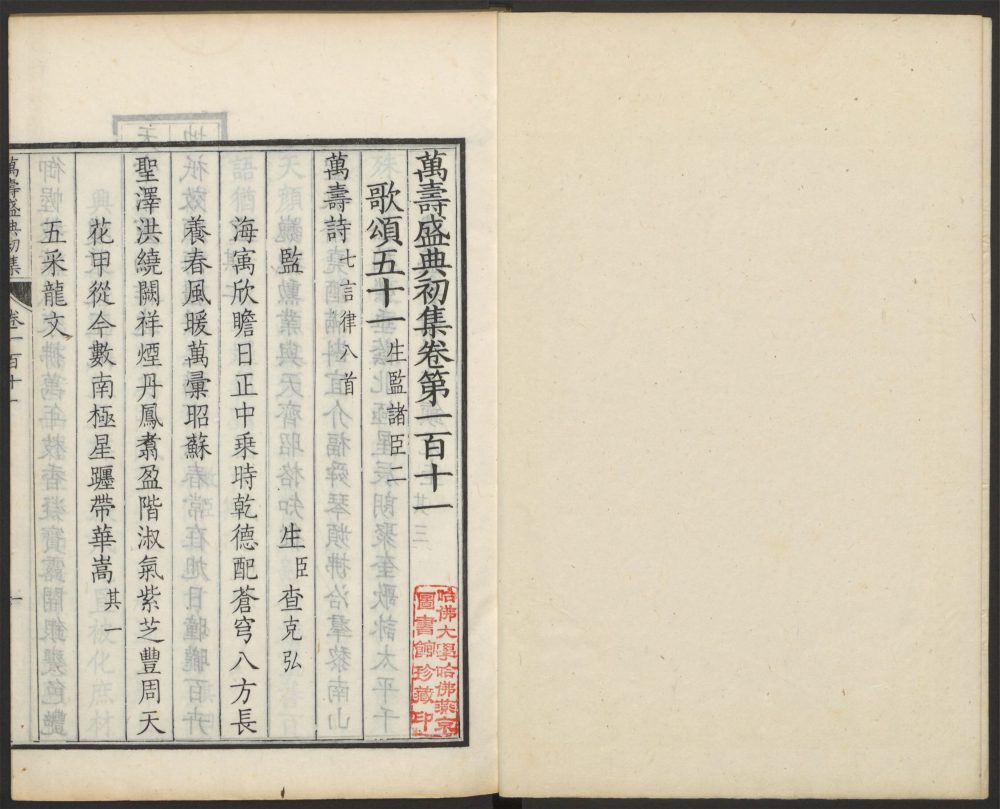 萬壽盛典初集卷第一百十一
歌頌五十一 生監諸臣二
萬壽詩 七言律八首
監 生 臣 查克弘
海寓欣瞻日正中乘時乾德配蒼穹八方長
養春風暖萬彙昭蘇
聖澤洪繞闕祥煙丹鳳翥盈階淑氣紫芝豐周天
花甲從今數南極星躔帶華嵩 其一
五采龍文
萬壽盛典初集 卷一百十一 一
哈佛大學哈佛燕京
圖書館珍藏印